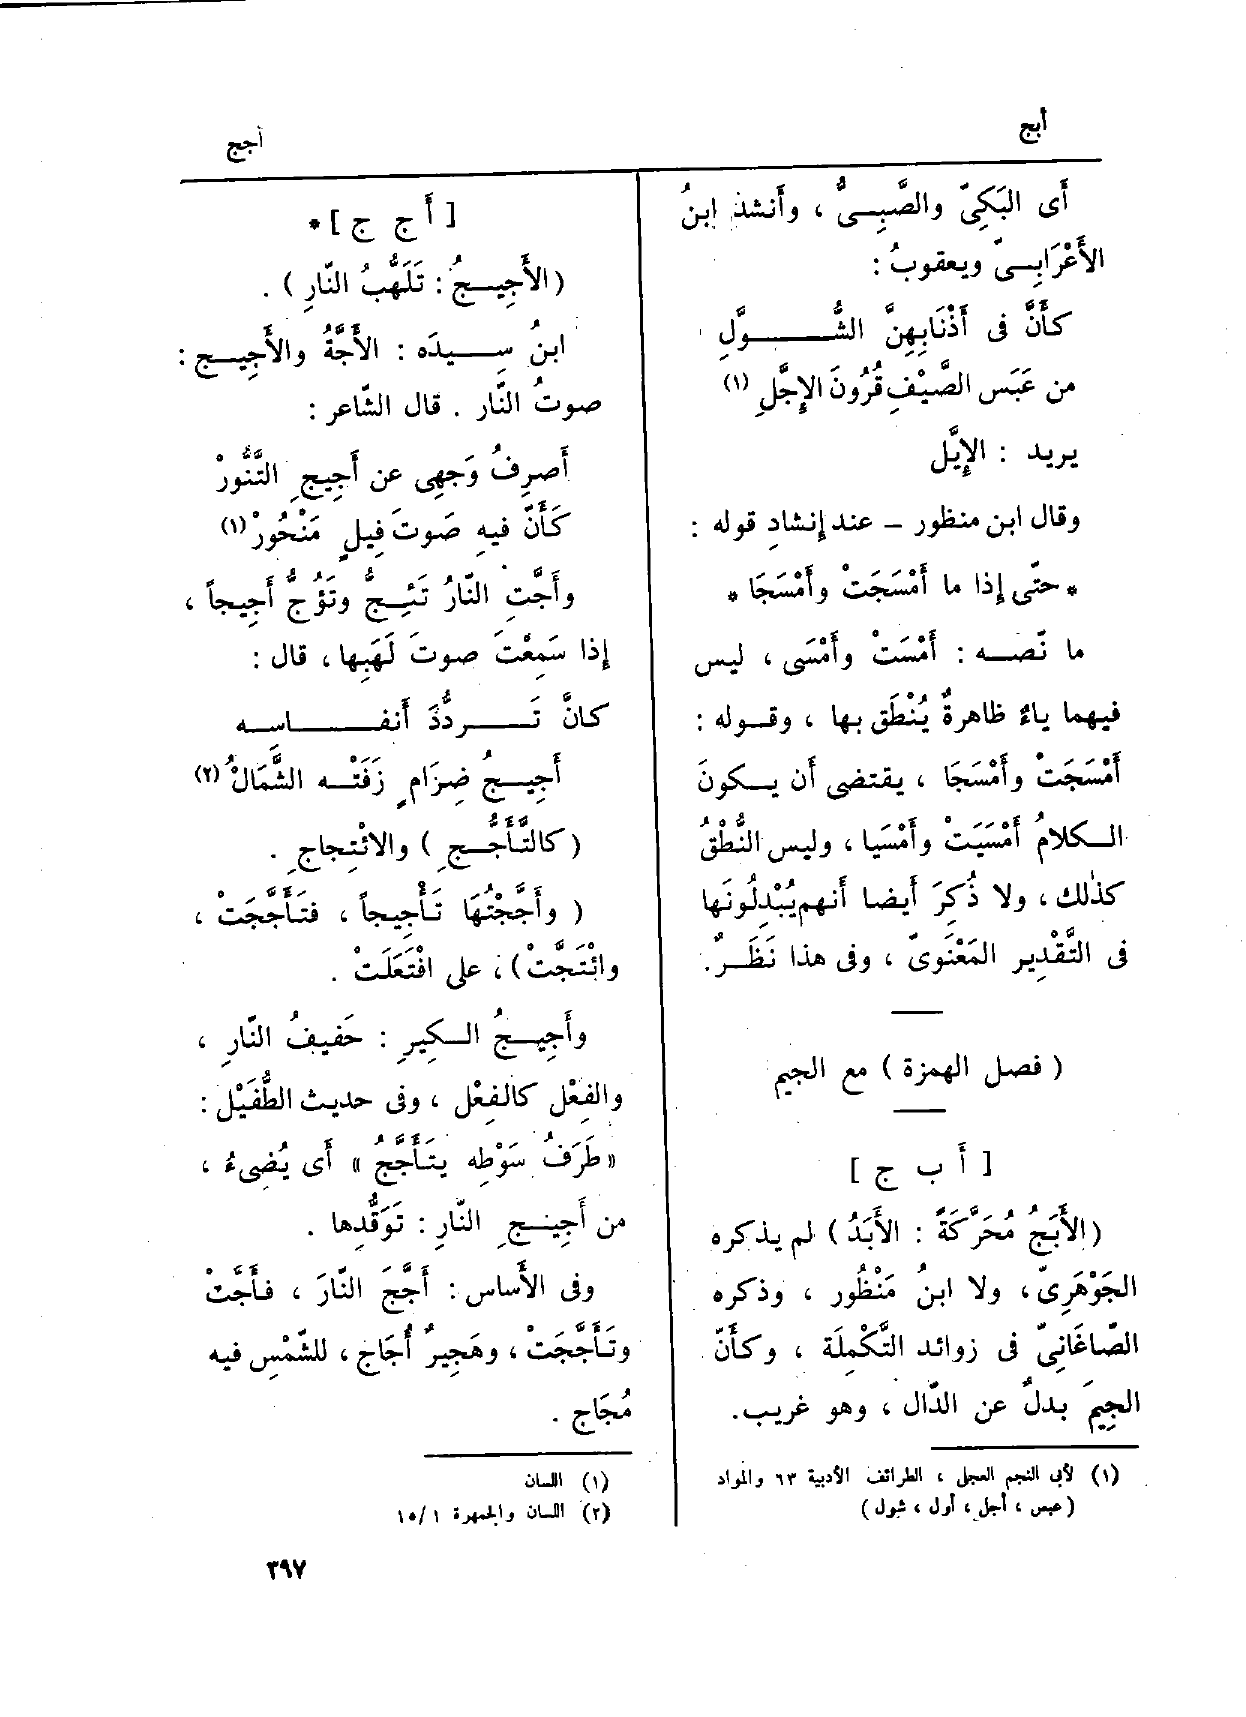 أبج
أجج
أَى البَكِىّ والصَّبِىُّ ، وأَنشد ابنُ
الأَعْرَابِىّ ويعقوبُ :
كأَنَّ فى أَذْنَابِهِنَّ الشُّوَّلِ
من عَبَس الصَّيْفِ قُرُونَ الإِجَّلِ (١)
يريد : الإِيَّل
وقال ابن منظور – عند إِنشادِ قوله :
* حتّى إِذا ما أَمْسَجَتْ وأَمْسَجَا *
ما نّصه : أَمْسَتْ وأَمْسَى ، ليس
فيهما ياءٌ ظاهرةٌ يُنْطَق بها ، وقوله :
أَمْسَجَتْ وأَمْسَجَا ، يقتضى أَن يكونَ
الكلامُ أَمْسَيَتْ وأَمْسَيا ، وليس النُّطْقُ
كذٰلك ، ولا ذُكِرَ أَيضا أَنهم يُبْدِلُونَها
فى التَّقْدِير المَعْنَوىّ ، وفى هذا نَظَرٌ .
( فصل الهمزة ) مع الجيم
[ أَ ب ج ]
(الأَبَجُ مُحَرَّكَةً : الأَبَدُ ) لم يذكره
الجَوْهَرِىّ ، ولا ابنُ مَنْظُور ، وذكره
الصّاغَانِىّ فى زوائد التَّكْمِلَة ، وكأَنّ
الجِيمَ بدلٌ عن الدّال ، وهو غريب .
(١) لأبى النجم العجلى ، الطرائف الأدبية ٦٣ والمواد
(عبس ، أجل ، أول ، شول )
[ أَ ج ج ] *
(الأَجِيجُ : تَلَهُّبُ النّارِ ) .
ابنُ سِيدَه : الأَجَّةُ والأَجِيج :
صوتُ النّار . قال الشّاعر :
أَصرِفُ وَجهِى عن أَجِيجِ التَّنُّورْ
كَأَنّ فيهِ صَوتَ فِيلٍ مَنْحُورْ (١)
وأَجَّتِ النّارُ تَئِجُّ وتَؤُجُّ أَجِيجاً ،
إِذا سَمِعْتَ صوتَ لَهَبِها ، قال :
كانَّ تَردُّدَ أَنفاسِه
أَجِيجُ ضِرَامٍ زَفَتْه الشَّمَالُ (٢)
( كالتَّأَجُّجِ ) والائْتِجاجِ .
( وأَجَّجْتُهَا تَأْجِيجاً ، فتَأَجَّجَتْ ،
وائْتَجَّتْ ) ، على افْتَعَلَتْ .
وأَجِيجُ الكِيرِ : حَفِيفُ النّارِ ،
والفِعْل كالفِعْل ، وفى حديث الطُّفَيْل :
« طَرَفُ سَوْطِه يتَأَجَّجُ » أَى يُضِىءُ ،
من أَجِيجِ النّارِ : تَوَقُّدِها .
وفى الأَساس : أَجَّجَ النّارَ ، فأَجَّتْ
وتَأَجَّجَتْ ، وهَجِيرٌ أُجَاج ، للشَّمْسِ فيه
مُجَاج .
(١) اللسان
(٢) اللسان والجمهرة ١/ ١٥
٣٩٧